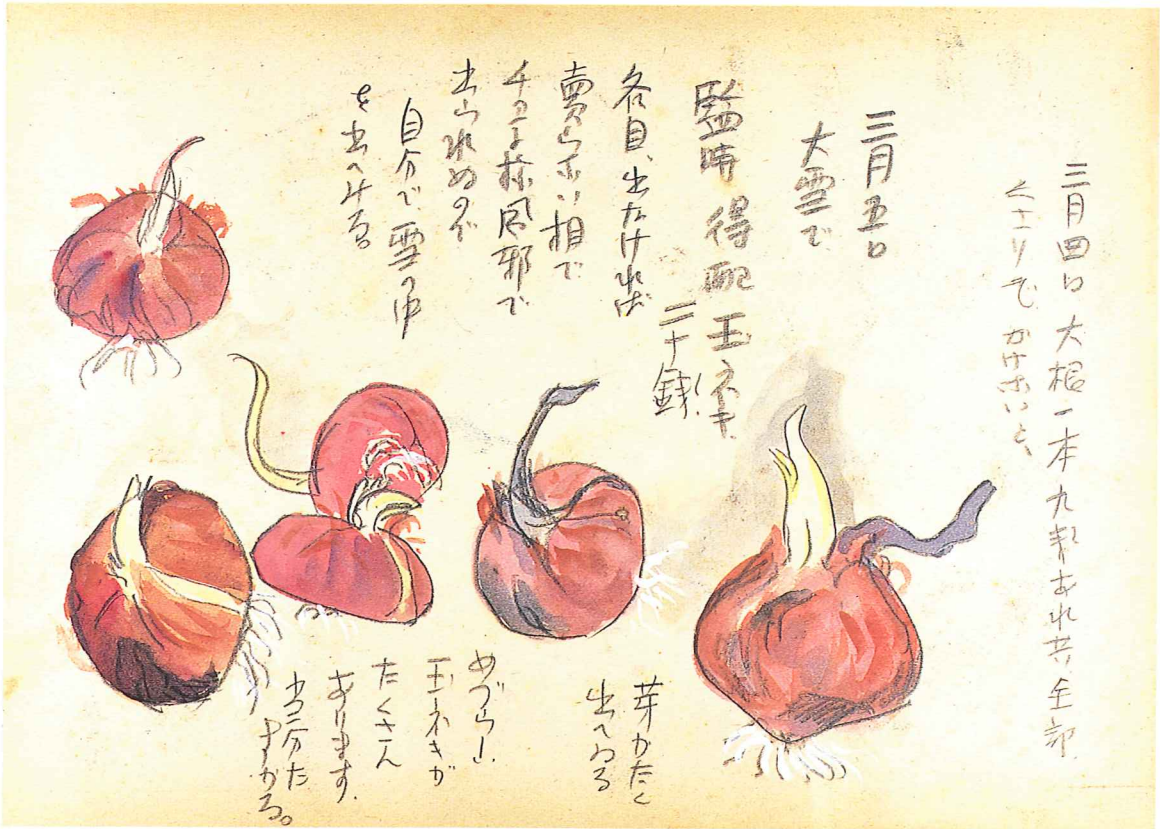 三月四日 大根一本九割あれ共全部
くさりでかけないと、
三月五日
大雪で
臨時 得配 玉ネギ
二十銭!
各自、出なければ
賣らない相で
チヱ子様風邪で
出られぬので
自分で雪の中
を出てみる。
芽がたく
出てゐる
めづらし
玉ネギが
たくさん
あります
当分た
すかる。